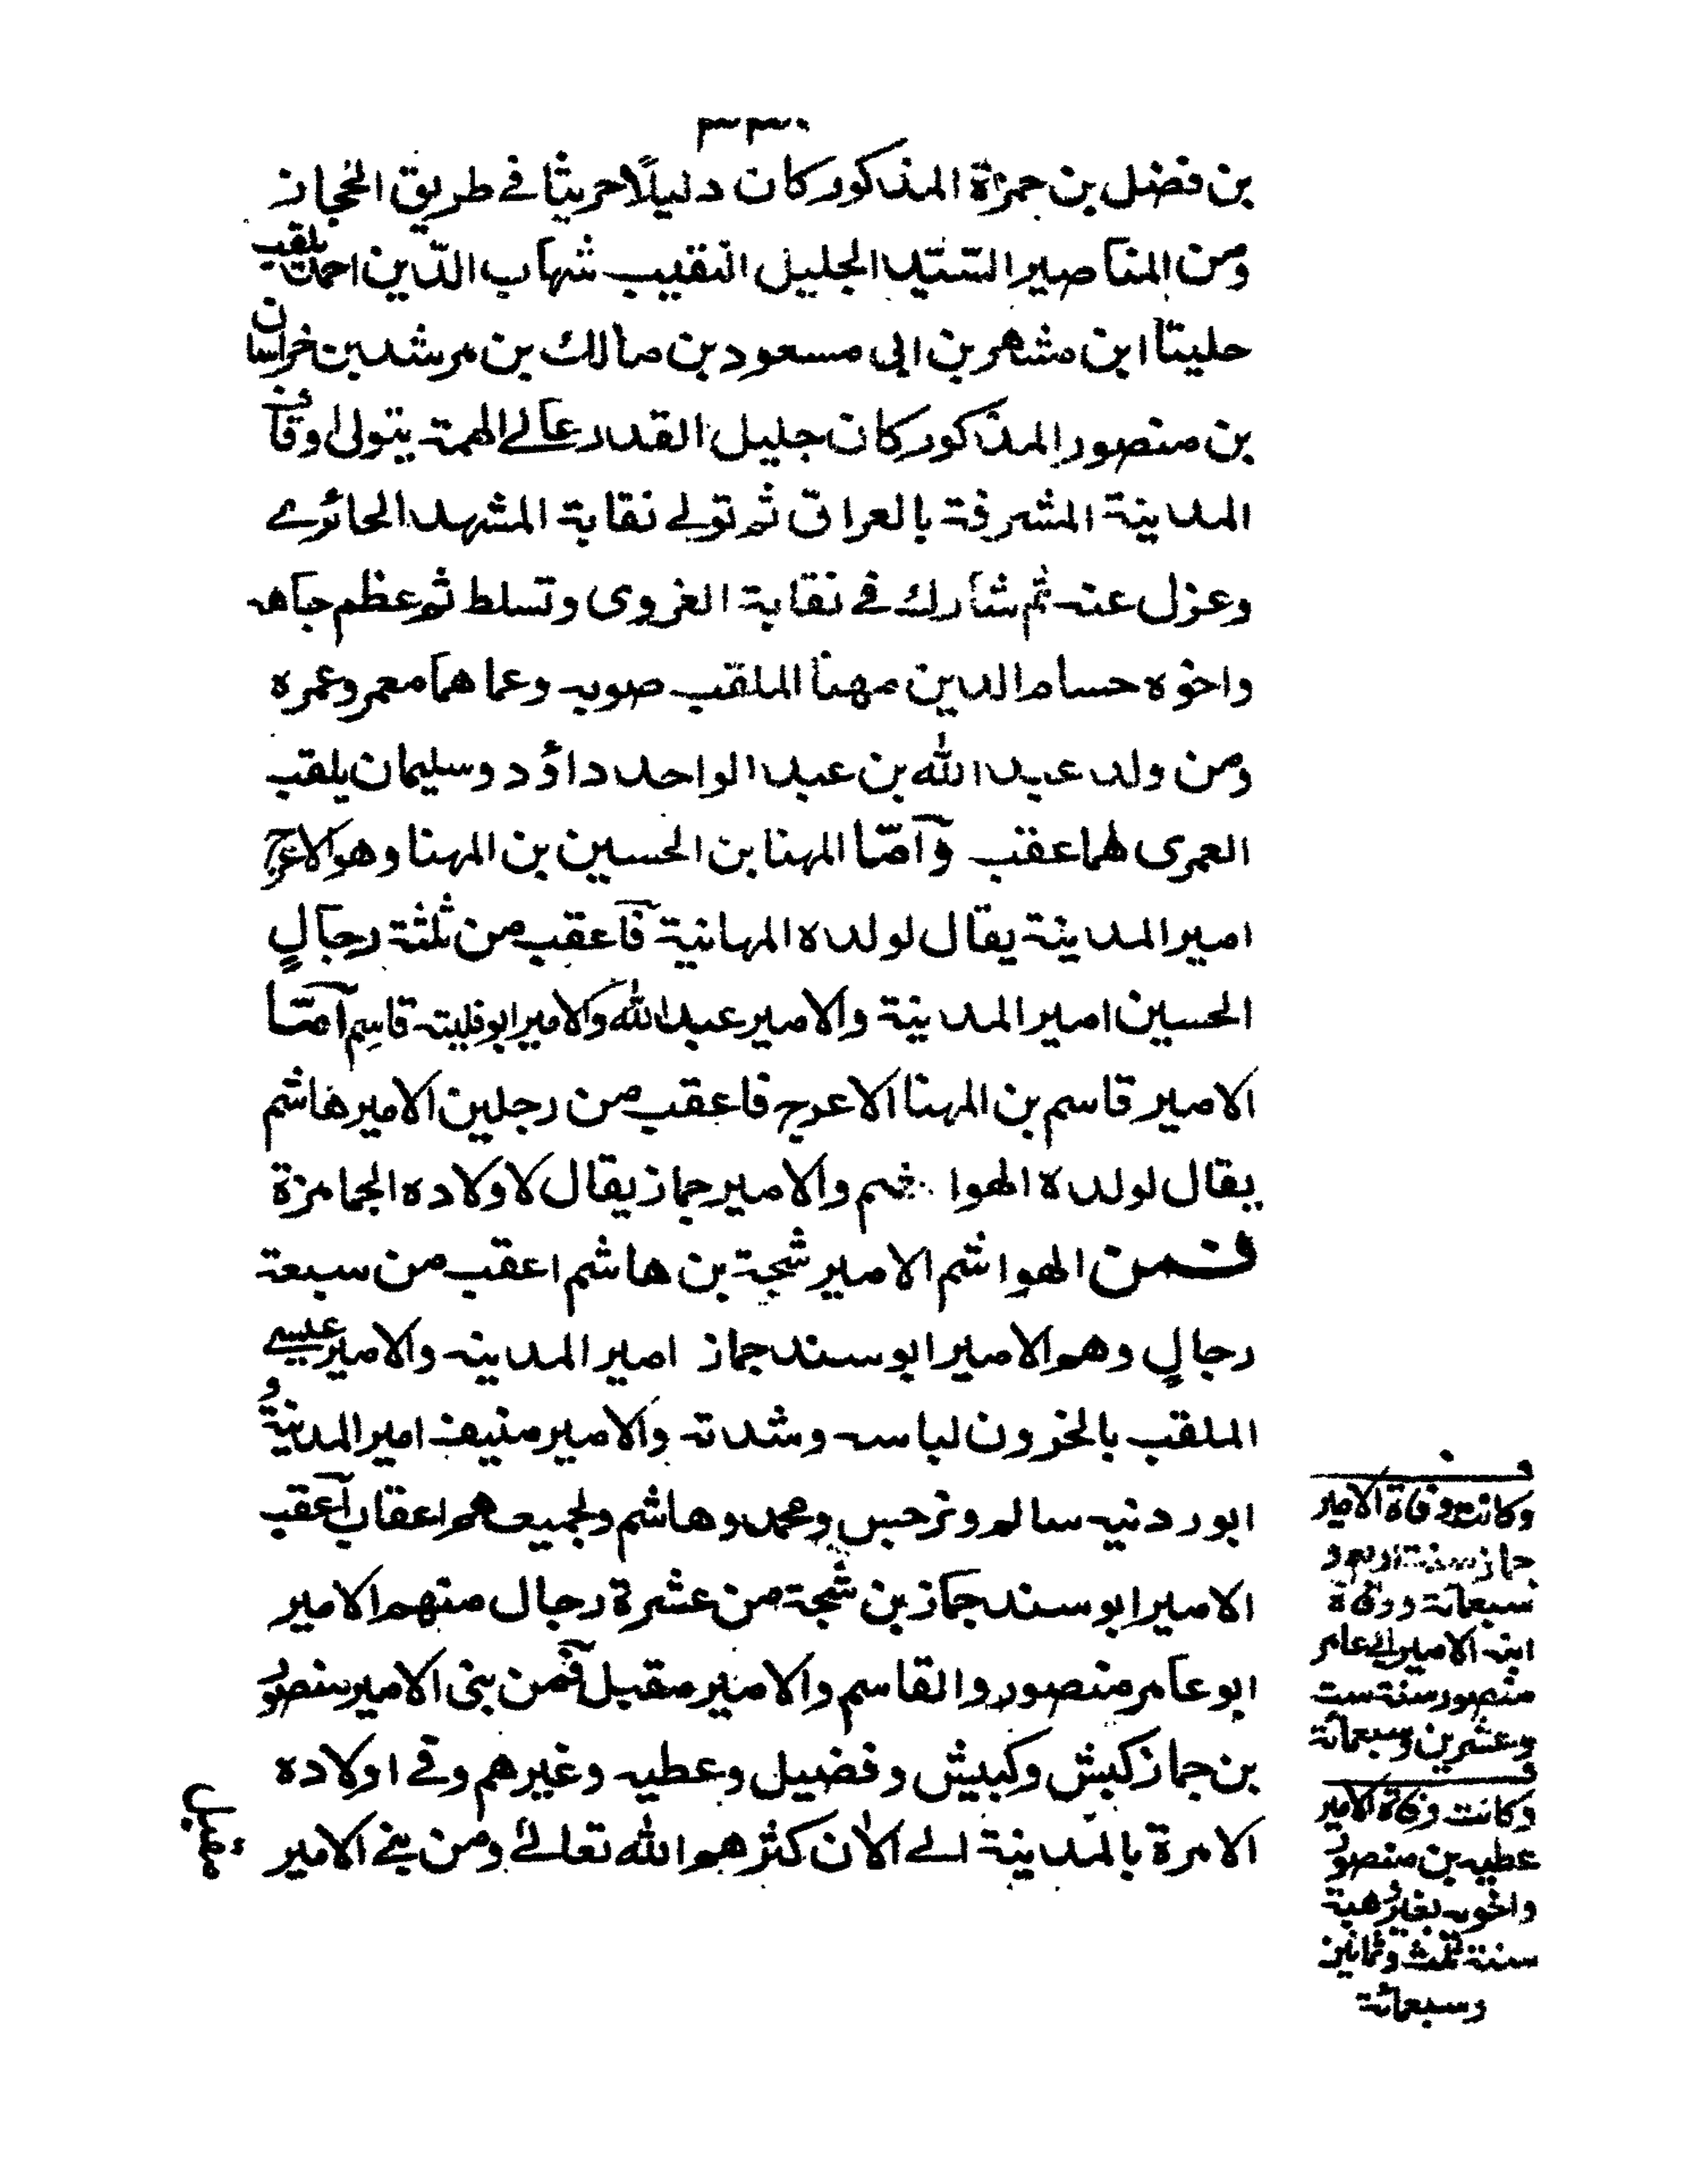 ٣٣٠
بن فضل بن حمزة المذكور كان دليلًا خريتا في طريق الحجاز
ومن المناصير السيد الجليل النقيب شهاب الدّين احمد يلقب
حليتا ابن مشهر بن ابى مسعود بن مالك بن مرشد بن خراسان
بن منصور المذكور كان جليل القدر عالى الهمة يتولى اوقاف
المدينة المشرفة بالعراق ثم تولى نقابة المشهد الحائرى
وعزل عنه ثم شارك في نقابة الغروى وتسلط ثم عظم جاهه
واخوه حسام الدين مهنا الملقب صوبه وعما هما معمر وعمره
ومن ولد عبد الله بن عبد الواحد داؤد وسليمان يلقب
العمرى لهما عقب وآمّا المهنا بن الحسين بن المهنا وهو الاعرج
امير المدينة يقال لولده المهانية فاعقب من ثلثة رجالٍ
الحسين امير المدينة والامير عبد الله والامير ابو فليته قاسم آمّا
الامير قاسم بن المهنا الاعرج فاعقب من رجلين الامير هاشم
يقال لولده الهوا شم والامير جماز يقال لاولاده الجمامزة
فمن الهواشم الامير شجة بن هاشم اعقب من سبعة
رجالٍ وهم الامير ابو سند جماز امير المدينه والامير عيسى
الملقب بالخرون لباسه وشدته والامير منيف امير المدينة و
ابو ردنيه سالم ونرجس ومحمد وهاشم ولجميعهم اعقاب آعقب
الامير ابو سند جماز بن شجة من عشرة رجال منهم الامير
ابو عامر منصور والقاسم والامير مقبل فمن بنى الامير منصور
بن جماز كبش وكبيش وفضيل وعطيه وغيرهم وفى اولاده
الامرة بالمدينة الى الآن كثرهم الله تعالى ومن بنى الامير
مقبل
وكانت وفاة الامير
جماز سنة اربع و
سبعمائة ووفاة
ابنه الامير ابى عامر
منصور سنة ست
وعشرين وسبعمائة
وكانت وفاة الامير
عطيه بن منصور
واخوه نغير هبة
سنة ثلث وثمانين
وسبعمائة